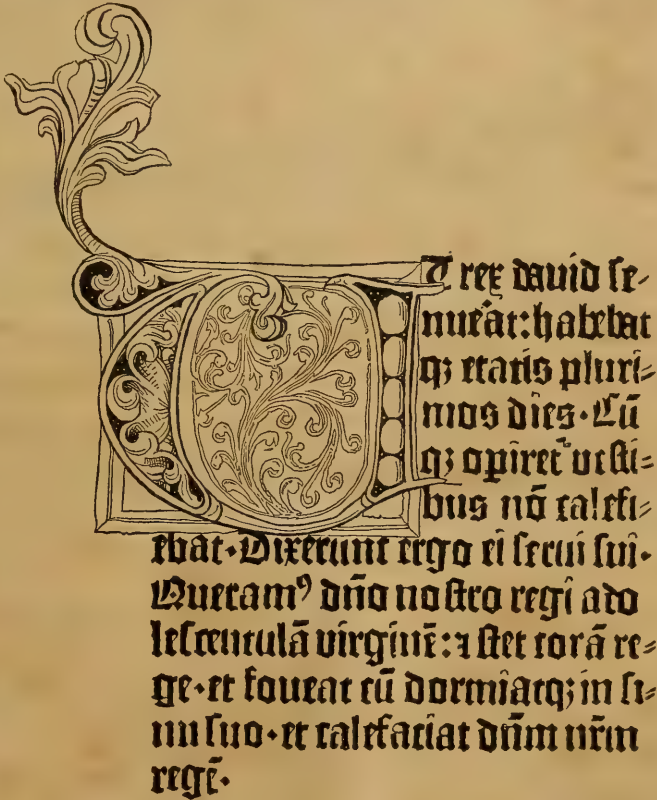 ET rex dauid se-
nuĕat: habebat
qꝫ etatis pluri-
mos dies. Cū
qꝫ opiret᷑ vesti-
bus nō calefi-
ebat. Dixerunt ergo ei serui sui.
Queramꝰ dn̄o nostro regi ado
lescentulā virginē: ⁊ stet corā re-
ge. et foueat eū dormiatqꝫ in si-
nu suo. et calefaciat dn̄m nr̄m
regē.